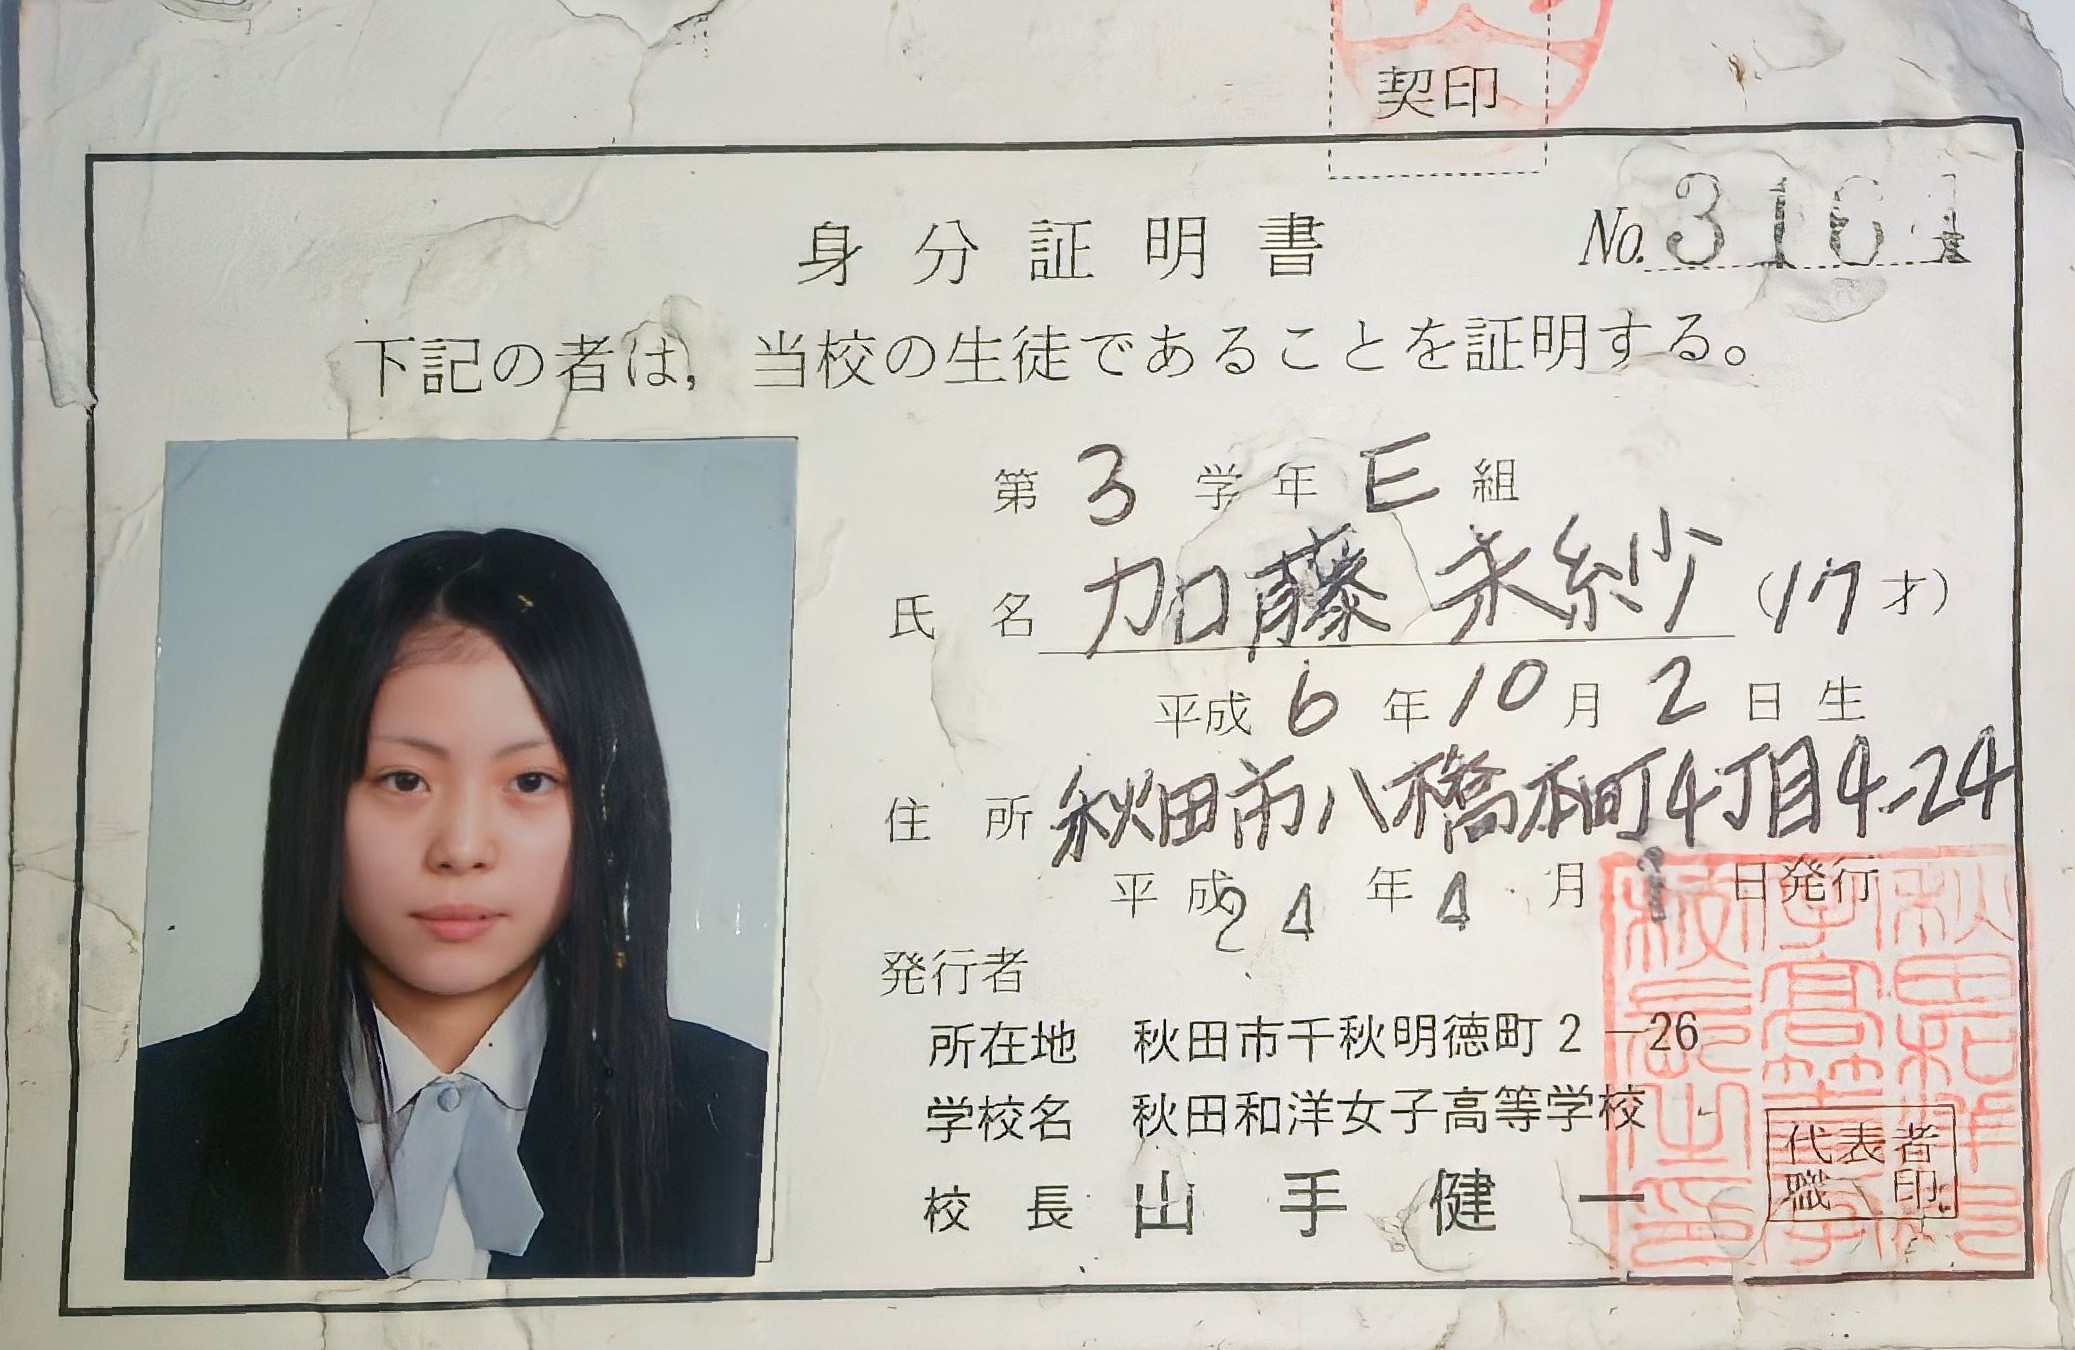 契印
身分証明書 No. 3161
下記の者は，当校の生徒であることを証明する。
第 3 学年 E 組
氏名 加藤 未紗 (17才)
平成 6 年 10 月 2 日生
住所 秋田市八橋本町4丁目4-24
平成 24 年 4 月 日発行
発行者
所在地 秋田市千秋明徳町2－26
学校名 秋田和洋女子高等学校
校長 山手健一
代表者
職印